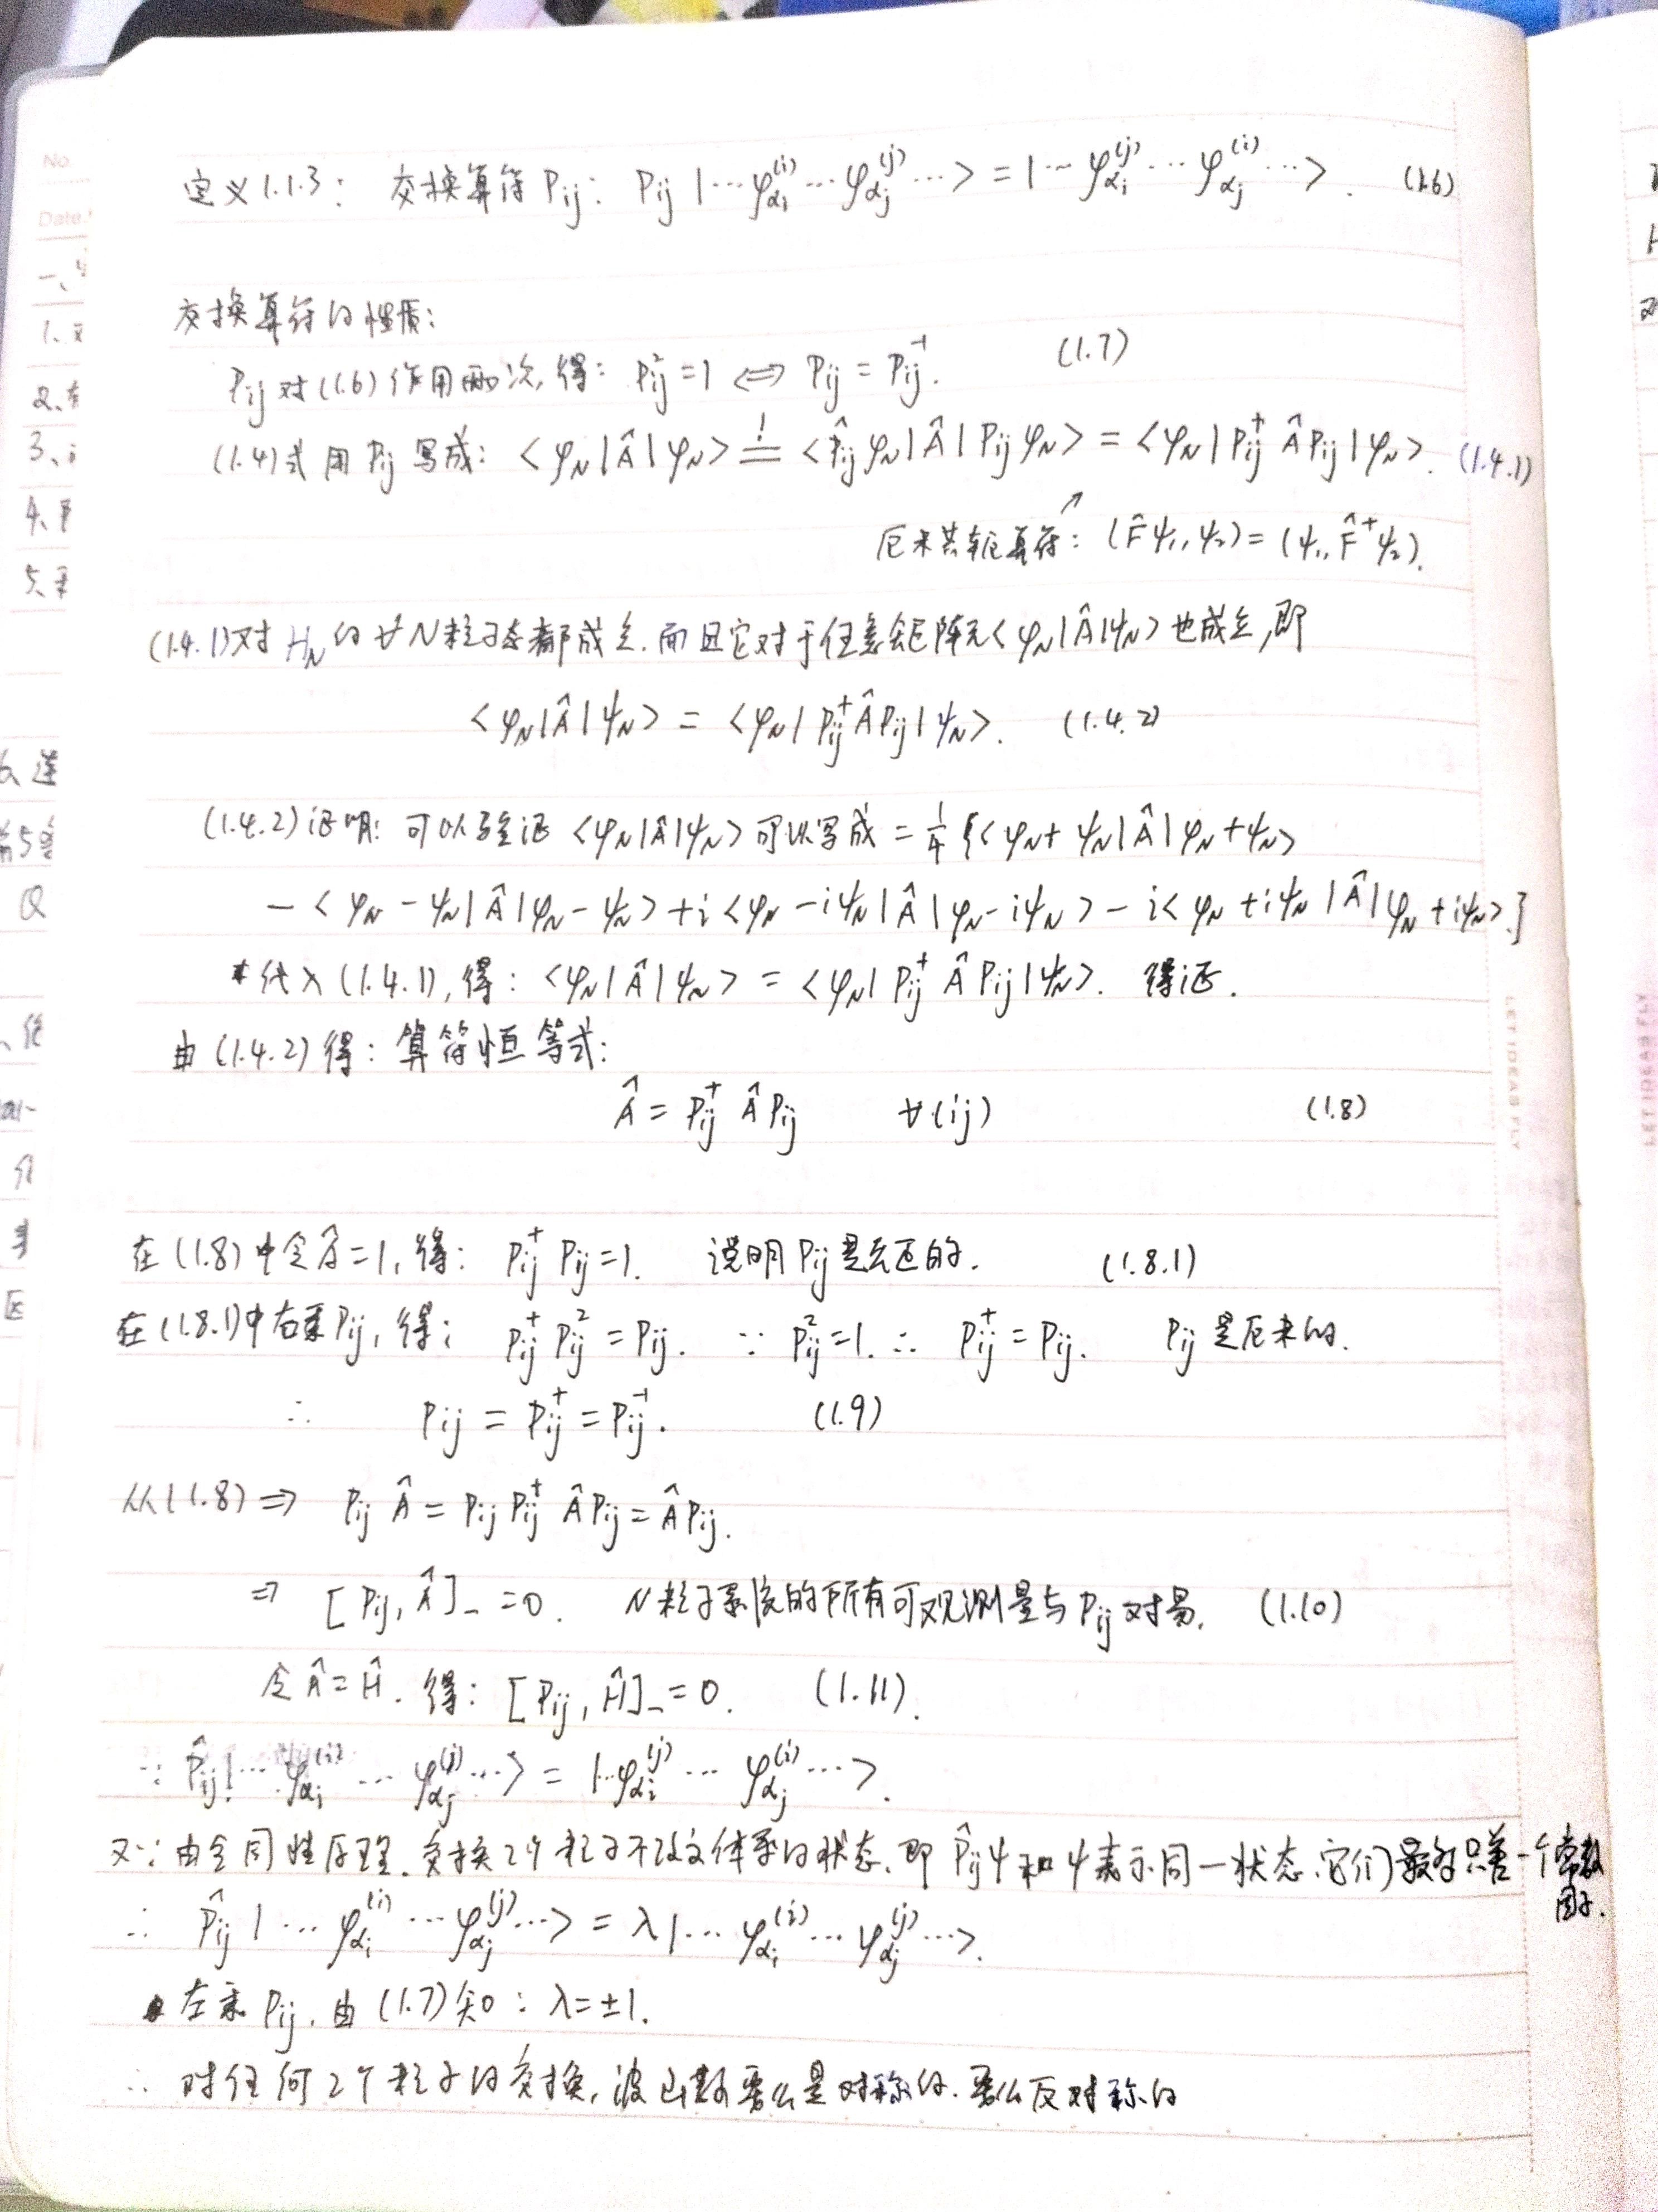 No
Date.
定义1.1.3: 交换算符 Pij: Pij |…φαi^(i)…φαj^(j)…> = |…φαi^(j)…φαj^(i)…>. (1.6)
交换算符的性质:
Pij 对(1.6)作用两次, 得: Pij² = 1 ⟺ Pij = Pij⁻¹. (1.7)
(1.4)式用 Pij 写成: <φN|Â|φN> =! <P̂ij φN|Â|Pij φN> = <φN|Pij⁺ Â Pij|φN>. (1.4.1)
厄米共轭算符: (F̂ψ₁, ψ₂) = (ψ₁, F̂⁺ψ₂).
(1.4.1)对 HN 的 ∀ N粒子态都成立. 而且它对于任意矩阵元<φN|Â|ψN>也成立, 即
<φN|Â|ψN> = <φN|Pij⁺ Â Pij|ψN>. (1.4.2)
(1.4.2)证明: 可以验证 <φN|Â|ψN> 可以写成 = ¼{<φN+ψN|Â|φN+ψN>
- <φN-ψN|Â|φN-ψN> + i<φN-iψN|Â|φN-iψN> - i<φN+iψN|Â|φN+iψN>.}
代入(1.4.1), 得: <φN|Â|ψN> = <φN|Pij⁺ Â Pij|ψN>. 得证.
由(1.4.2)得: 算符恒等式:
Â = Pij⁺ Â Pij ∀(ij) (1.8)
在(1.8)中令Â=1, 得: Pij⁺ Pij = 1. 说明 Pij 是幺正的. (1.8.1)
在(1.8.1)中右乘Pij, 得: Pij⁺ Pij² = Pij. ∵ Pij² = 1. ∴ Pij⁺ = Pij. Pij 是厄米的.
∴ Pij = Pij⁺ = Pij⁻¹. (1.9)
从(1.8) ⇒ Pij Â = Pij Pij⁺ Â Pij = Â Pij.
⇒ [Pij, Â]₋ = 0. N粒子系统的所有可观测量与Pij对易. (1.10)
令Â=Ĥ. 得: [Pij, Ĥ]₋ = 0. (1.11).
∵ P̂ij|…φαi^(i)…φαj^(j)…> = |…φαi^(j)…φαj^(i)…>.
又∵由全同性原理, 交换2个粒子不改变体系的状态, 即 P̂ijψ 和ψ表示同一状态. 它们最多只差一个常数
因子.
∴ P̂ij|…φαi^(i)…φαj^(j)…> = λ|…φαi^(i)…φαj^(j)…>.
左乘 Pij. 由(1.7)知: λ=±1.
∴ 对任何2个粒子的交换, 波函数要么是对称的. 要么反对称的